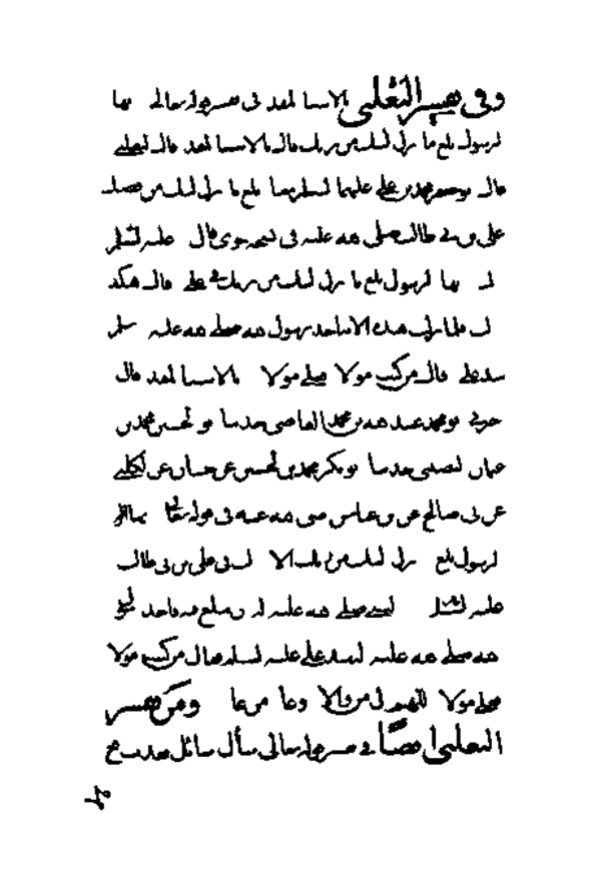 وفي تفسير الثعلبي بالاسناد المقدم في تفسير قوله تعالى يا ايها
الرسول بلغ ما انزل اليك من ربك قال بالاسناد المقدم قال الثعلبي
قال ابو جعفر محمد بن علي عليهما السلم معناها بلغ ما انزل اليك من فضل
علي بن ابي طالب صلى الله عليه وفي نسخة اخرى قال عليه السلم
يا ايها الرسول بلغ ما انزل اليك من ربك في علي قال هكذا
فلما نزلت هذه الاية اخذ رسول الله صلى الله عليه وسلم
بيد علي وقال من كنت مولاه فعلي مولاه وبالاسناد المقدم قال
اخبرني ابو محمد عبد الله بن محمد القاضي حدثنا ابو الحسين محمد بن
عثمان النصيبي حدثنا ابو بكر محمد بن الحسين عن حسان عن الكلبي
عن ابي صالح عن ابن عباس رضي الله عنه في قوله تعالى يا ايها
الرسول بلغ ما انزل اليك من ربك الاية في علي بن ابي طالب
عليه السلم امر النبي صلى الله عليه ان يبلغ فيه فاخذ رسول
الله صلى الله عليه بيد علي عليه السلم فقال من كنت مولاه
فعلي مولاه اللهم وال من والاه وعاد من عاداه ومن تفسير
الثعلبي ايضا في تفسير قوله تعالى سأل سائل بعذاب